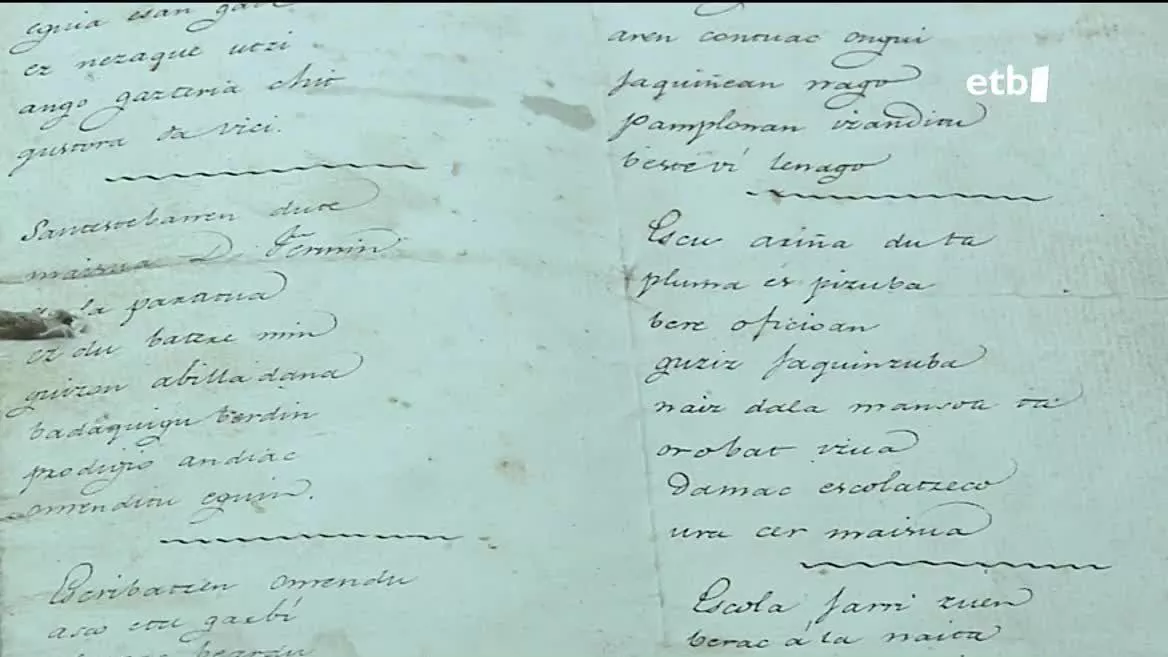 eguia esan
ez nezaque utzi
ango gazteria chit
gustora da vici.
Santestebarren dute
maisua D. Fermin.
la paratua
ez du batere min
guizon abilla dana
badaquigu berdin
prodigio andiac
omenditu eguin.
Escribatzen omendu
asco etu garbi
aren contuac ongui
Jaquiñean nago
Pamplonan izanditu
beste vi lenago
Escu ariña du ta
pluma ez pizuba
bere oficioan
guziz Jaquinzuba
naiz dala mansoa ta
orobat viua
Damac escolatzeco
ura cer maisua
Escola Jarri zuen
berac á la naita
etb1